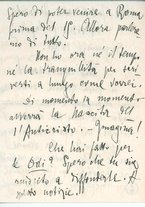 Spero di poter venire a Roma
prima del 15. Allora parlere
mo di tutto.
Non ho ora né il tempo,
né la tranquillità per scri
verti a lungo come vorrei.
Di momento in momento
avverrà la nascita del
l'Anticristo. - Immagina!
Che hai fatto per
le Ediz? Spero che tu sia
riuscito a diffonderle. A
presto notizie.